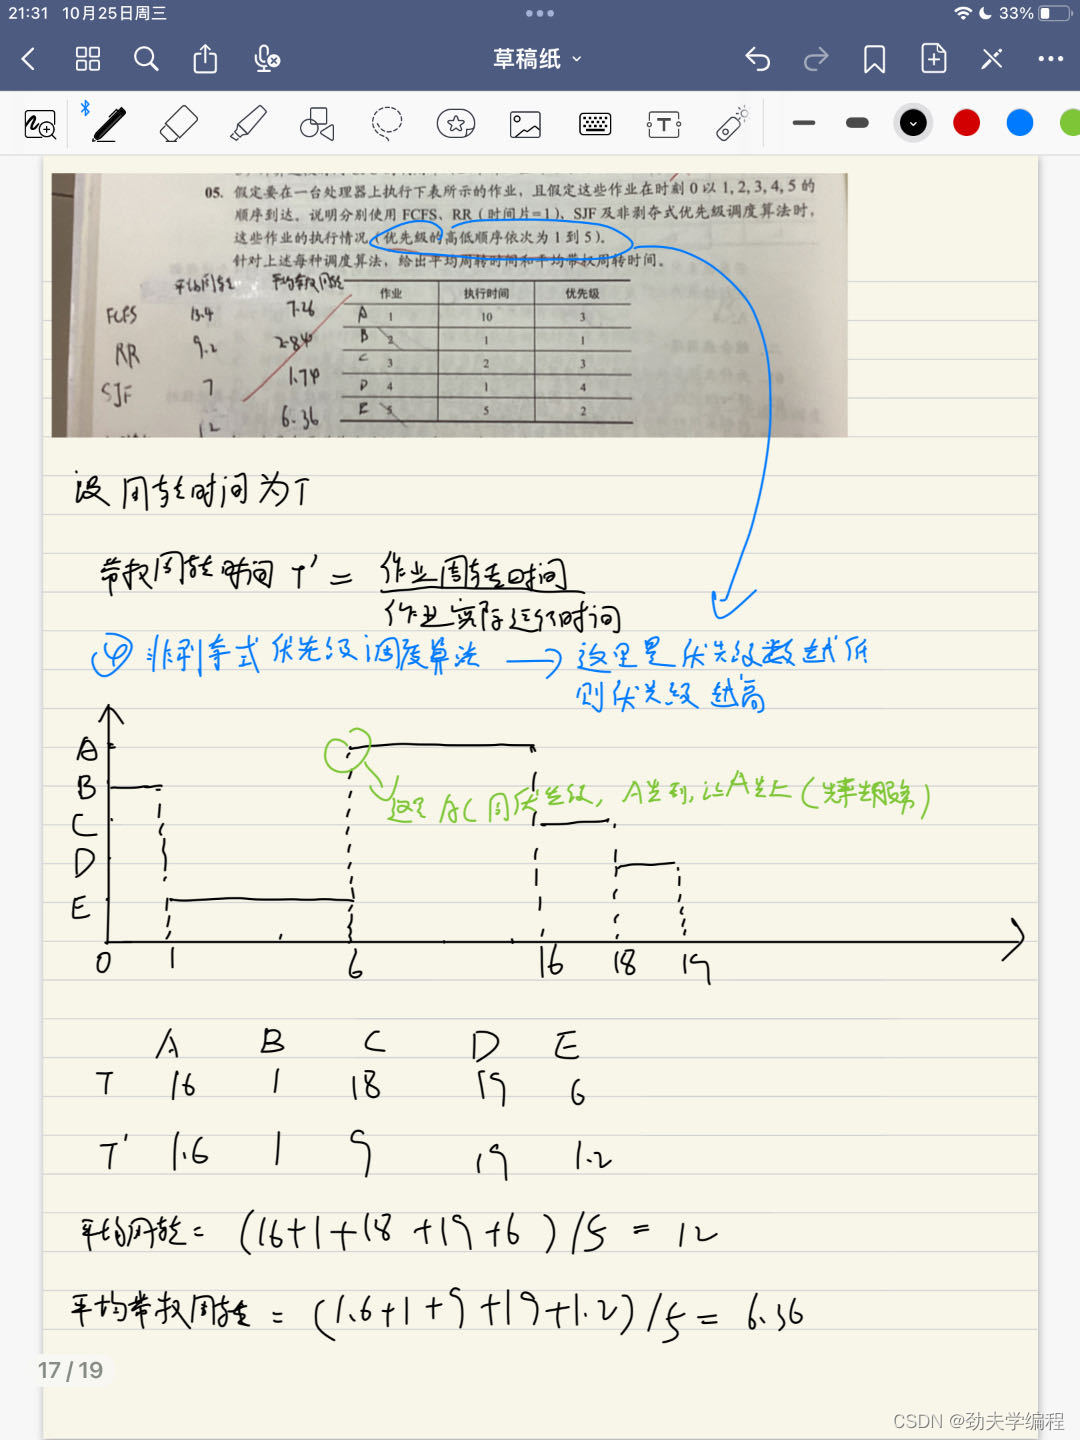 21:31 10月25日周三
33%
草稿纸
05. 假定要在一台处理器上执行下表所示的作业，且假定这些作业在时刻 0 以 1, 2, 3, 4, 5 的
顺序到达。说明分别使用 FCFS、RR（时间片=1）、SJF 及非剥夺式优先级调度算法时，
这些作业的执行情况（优先级的高低顺序依次为 1 到 5）。
针对上述每种调度算法，给出平均周转时间和平均带权周转时间。
平均周转 平均带权周转
作业 执行时间 优先级
FCFS 13.4 7.26 A 1 10 3
RR 9.2 2.84 B 2 1 1
C 3 2 3
SJF 7 1.74 D 4 1 4
12 6.36 E 5 5 2
设周转时间为T
带权周转时间 T' = 作业周转时间
作业实际运行时间
④ 非剥夺式优先级调度算法 → 这里是优先级数越低
则优先级越高
A
B
这里AC同优先级，A先到，让A先上（先来先服务）
C
D
E
0 1 6 16 18 19
A B C D E
T 16 1 18 19 6
T' 1.6 1 9 19 1.2
平均周转 = (16+1+18+19+6)/5 = 12
平均带权周转 = (1.6+1+9+19+1.2)/5 = 6.36
17/19
CSDN @劲夫学编程